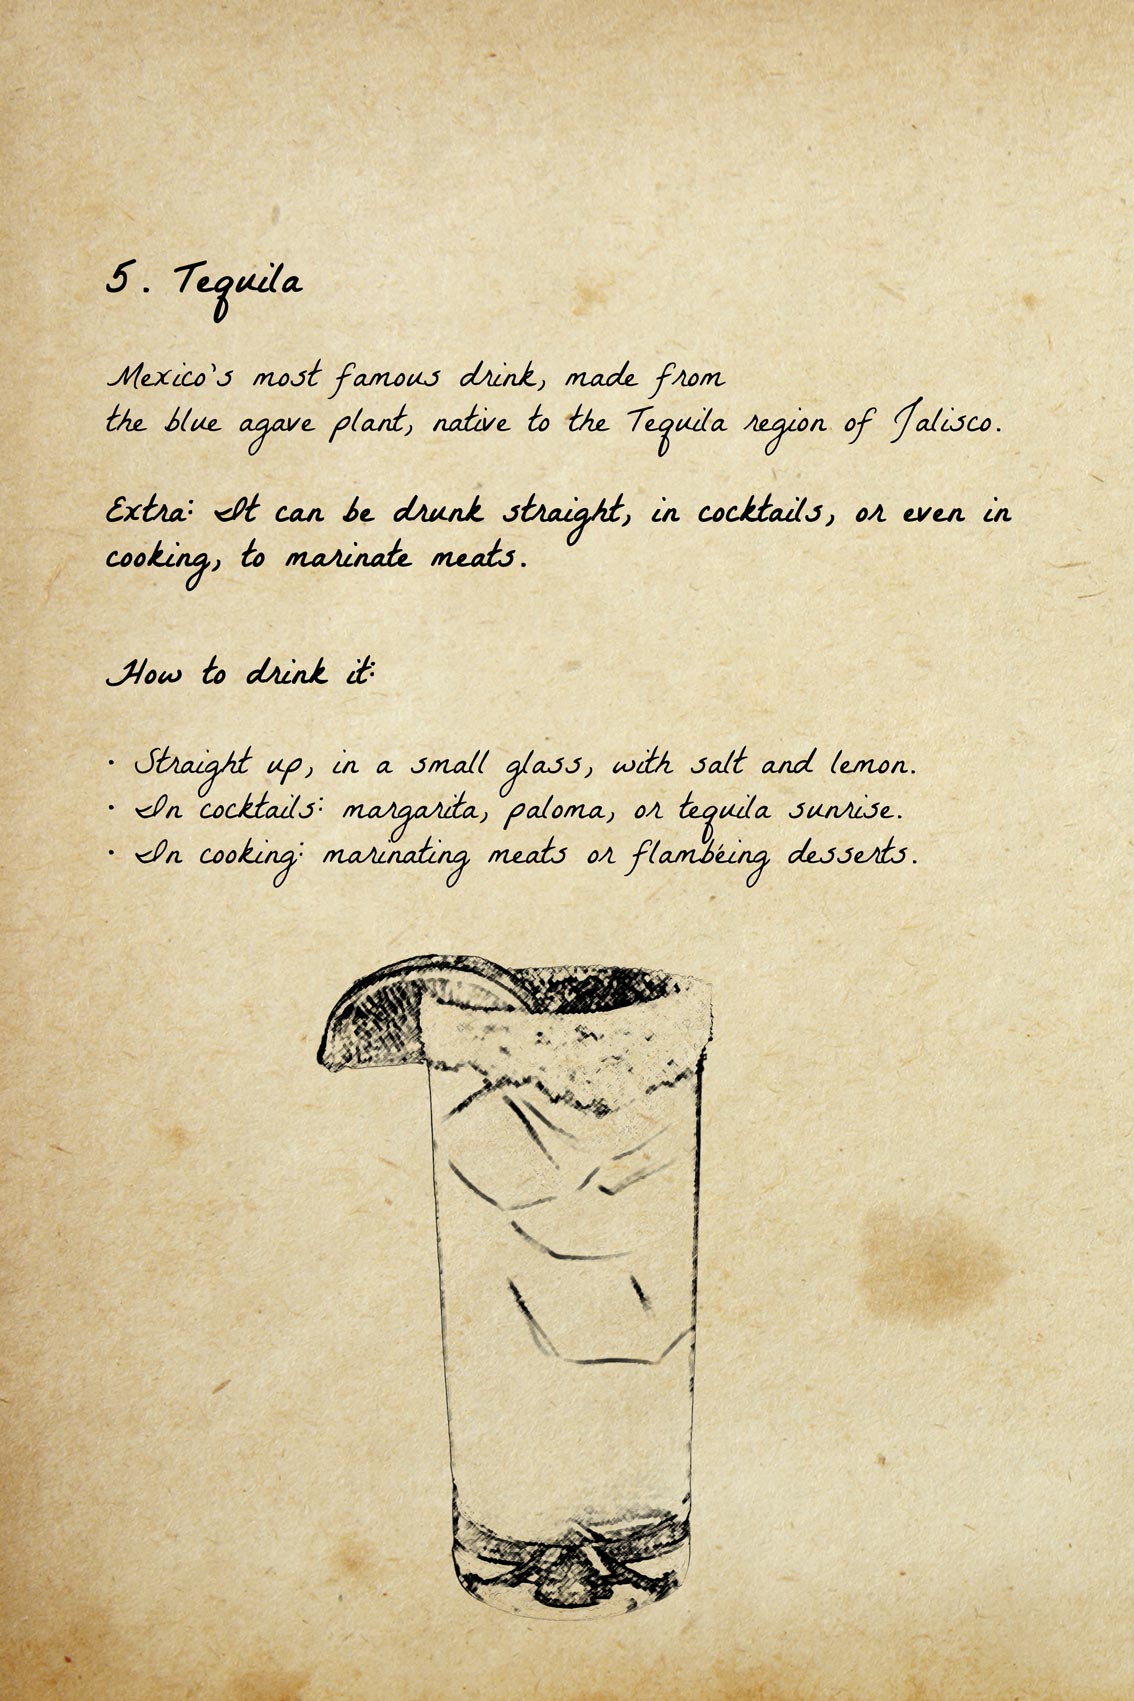 5. Tequila
Mexico's most famous drink, made from
the blue agave plant, native to the Tequila region of Jalisco.
Extra: It can be drunk straight, in cocktails, or even in
cooking, to marinate meats.
How to drink it:
· Straight up, in a small glass, with salt and lemon.
· In cocktails: margarita, paloma, or tequila sunrise.
· In cooking: marinating meats or flambéing desserts.